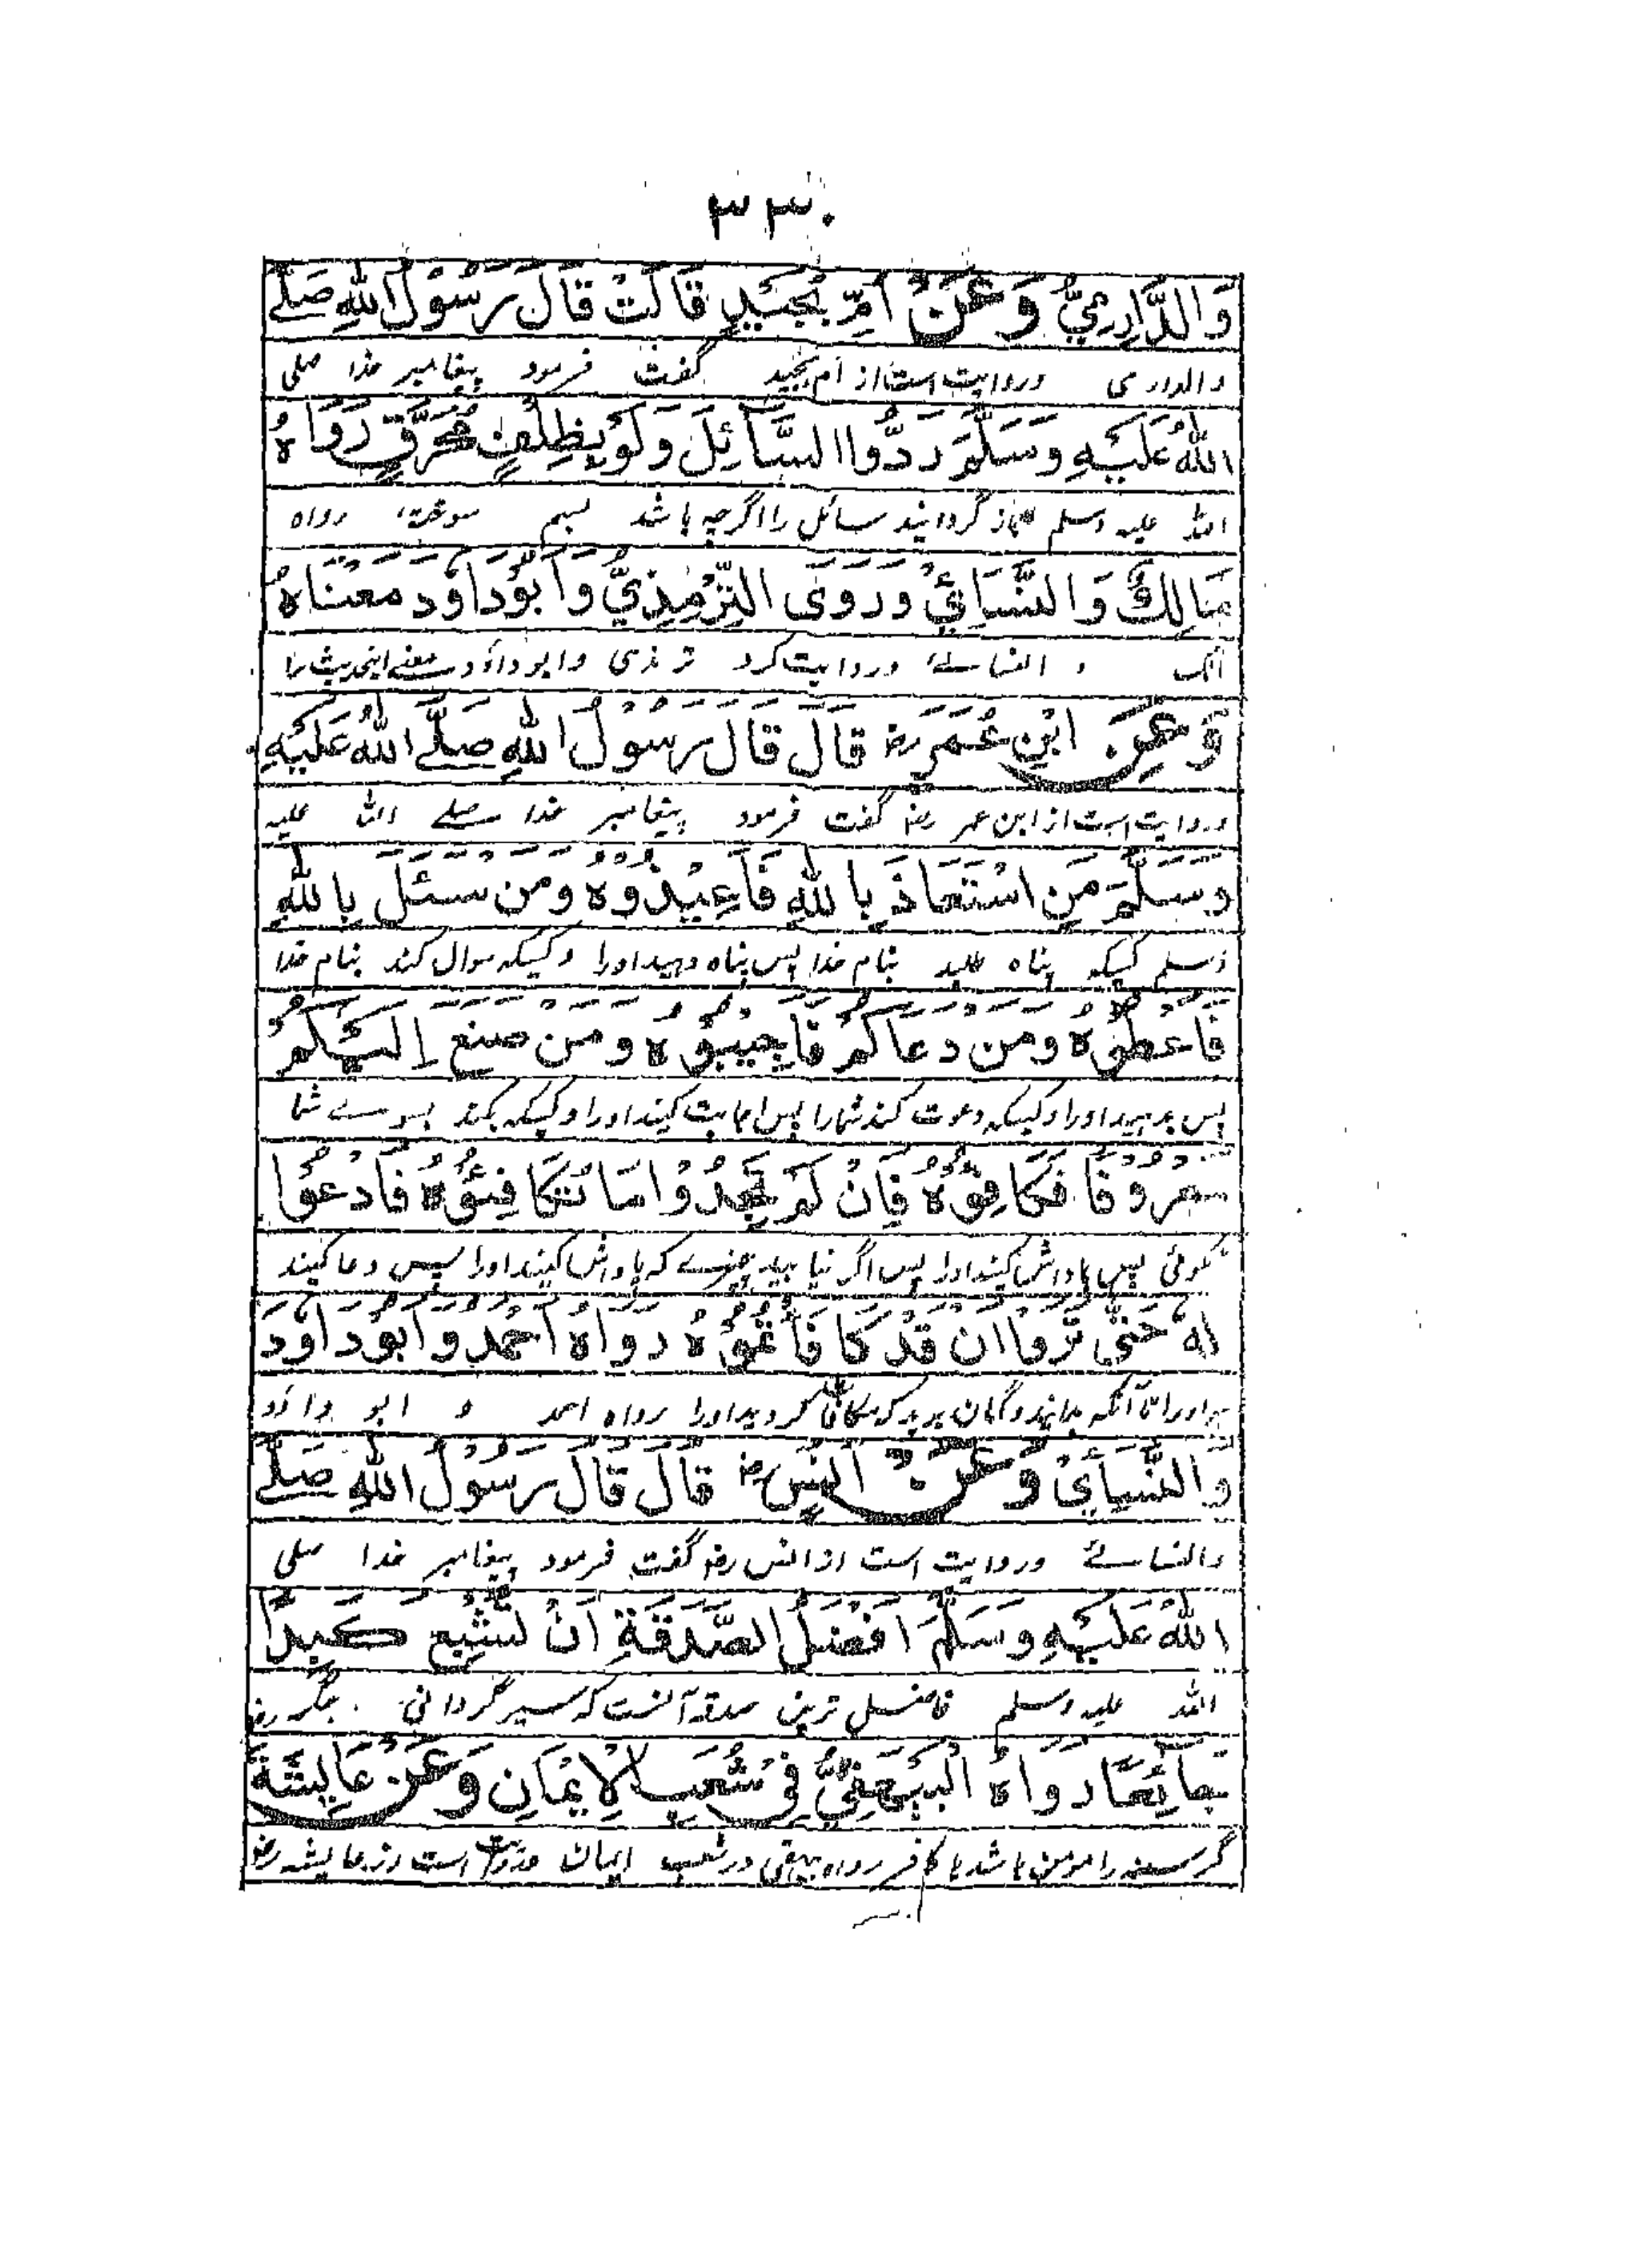 ۳۳۰
وَالدَّارِمِيُّ وَعَنْ اُمِّ بُجَيْدٍ قَالَتْ قَالَ رَسُوْلُ اللهِ صَلَّے
والدارمی وروایت است از ام بجید گفت فرمود پیغامبر خدا صلی
اللهُ عَلَيْهِ وَسَلَّمَ رَدُّوا السَّآئِلَ وَلَوْ بِظِلْفٍ مُحَرَّقٍ رَوَاهُ
الله علیه وسلم باز گردانید سائل را اگرچه باشد بسم سوخته رواه
مَالِكٌ وَالنَّسَائِيُّ وَرَوَى التِّرْمِذِيُّ وَاَبُوْدَاوٗدَ مَعْنَاهُ
و النسائے وروایت کرد ترمذی وابوداؤد معنے اینحدیث را
وَعَنِ ابْنِ عُمَرَ رض قَالَ قَالَ رَسُوْلُ اللهِ صَلَّے اللهُ عَلَيْهِ
وروایت است از ابن عمر رض گفت فرمود پیغامبر خدا صلے الله علیه
وَسَلَّمَ مَنِ اسْتَعَاذَ بِاللهِ فَاَعِيْذُوْهُ وَمَنْ سَئَلَ بِاللهِ
وسلم کسیکه پناه طلبد بنام خدا پس پناه دهید اورا وکسیکه سوال کند بنام خدا
فَاَعْطُوْهُ وَمَنْ دَعَاكُمْ فَاَجِيْبُوْهُ وَمَنْ صَنَعَ اِلَيْكُمْ
پس بدهید اورا وکسیکه دعوت کند شمارا پس اجابت کنید اورا وکسیکه بکند بسوے شما
مَعْرُوْفًا فَكَافِئُوْهُ فَاِنْ لَمْ تَجِدُوْا مَا تُكَافِئُوْهُ فَادْعُوْا
نکوئی پس پاداش کنید اورا پس اگر نیابید چیزے که پاداش کنید اورا پس دعا کنید
لَهٗ حَتّٰى تَرَوْا اَنْ قَدْ كَافَأْتُمُوْهُ رَوَاهُ اَحْمَدُ وَاَبُوْدَاوٗدَ
اورا تا آنکه بدانید وگمان برید که مکافات کردید اورا رواه احمد و ابو داؤد
وَالنَّسَائِيُّ وَعَنْ اَنَسٍ رض قَالَ قَالَ رَسُوْلُ اللهِ صَلَّے
والنسائے وروایت است از انس رض گفت فرمود پیغامبر خدا صلی
اللهُ عَلَيْهِ وَسَلَّمَ اَفْضَلُ الصَّدَقَةِ اَنْ تُشْبِعَ كَبِدًا
الله علیه وسلم فاضل ترین صدقه آنست که سیر گردانی جگر
جَائِعًا رَوَاهُ الْبَيْهَقِيُّ فِيْ شُعَبِ الْاِيْمَانِ وَعَنْ عَائِشَةَ
گرسنه را مومن باشد یا کافر رواه بیهقی در شعب ایمان وروایت است از عایشه رض